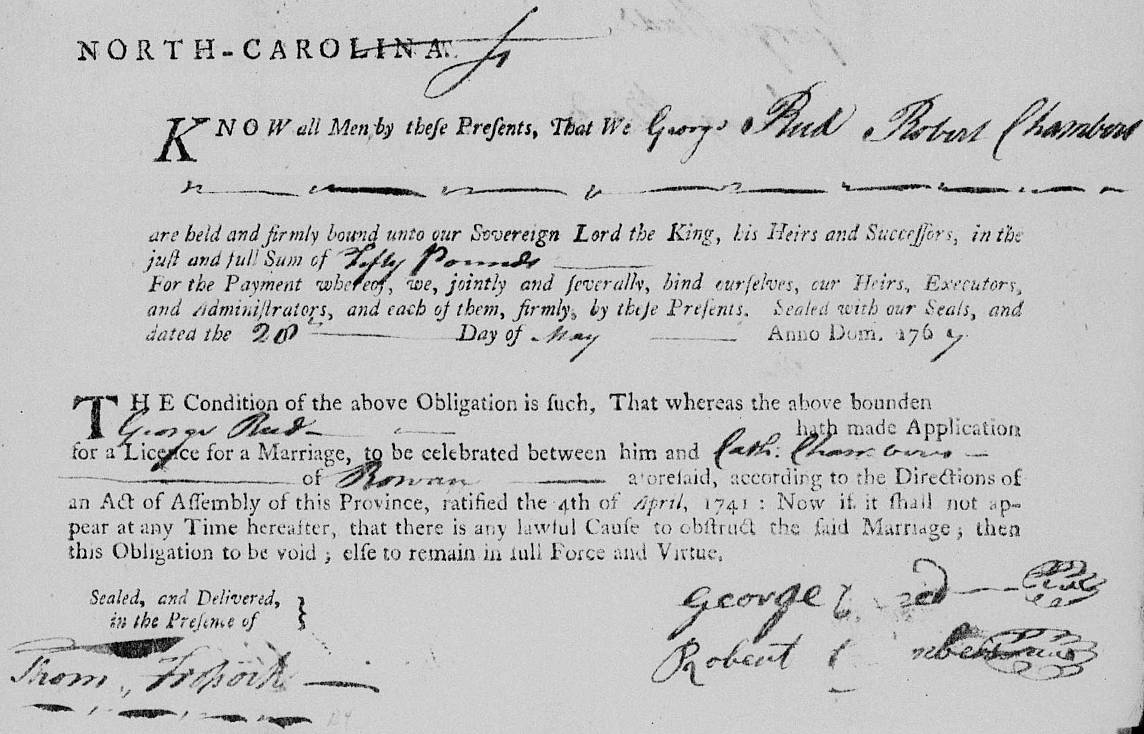 NORTH-CAROLINA. ss
KNOW all Men by theſe Preſents, That We George Reed Robert Chambers
are held and firmly bound unto our Sovereign Lord the King, his Heirs and Succeſſors, in the
juſt and full Sum of Fifty Pounds
For the Payment whereof, we, jointly and ſeverally, bind ourſelves, our Heirs, Executors,
and Adminiſtrators, and each of them, firmly, by theſe Preſents. Sealed with our Seals, and
dated the 20th Day of May Anno Dom. 1767.
THE Condition of the above Obligation is ſuch, That whereas the above bounden
George Reed hath made Application
for a Licence for a Marriage, to be celebrated between him and Cath: Chambers
of Rowan aforeſaid, according to the Directions of
an Act of Aſſembly of this Province, ratified the 4th of April, 1741 : Now if it ſhall not ap-
pear at any Time hereafter, that there is any lawful Cauſe to obſtruct the ſaid Marriage ; then
this Obligation to be void ; elſe to remain in full Force and Virtue.
Sealed, and Delivered,
in the Preſence of
George
Robert
Thom